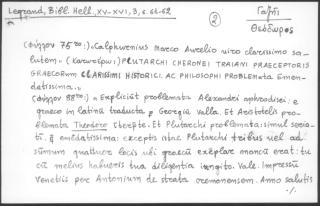 Legrand, Bibl. Hell., XV-XVI, 3, σ. 61-62
② Γαζῆς
Θεόδωρος
(φύλλον 75ᵛᵒ): «Calphurnius Marco Aurelio viro clarissimo sa-
lutem» (κατωτέρω:) PLUTARCHI CHERONEI TRAIANI PRAECEPTORIS
GRAECORUM CLARISSIMI HISTORICI. AC PHILOSOPHI PROBLEMATA Emen-
datissima.»
(φύλλον 88ᵛᵒ:) «Explicit problemata Alexandri aphrodisei: e
graeco in latinū traducta p Georgiū Valla. Et Aristotelis pro-
blemata Theodoro iterpte. Et Plutarchi problemata: simul sectio
tī. q̄ emēdatissima: exceptis istic Plutarchi tribus vel ad
summum quattuor locis ubi graecū exēplar mancū erat: tu
cū melius habueris tua diligentia īngito. Vale. Impressū
venetiis per Antonium de strata cremonensem. Anno salutis
./.